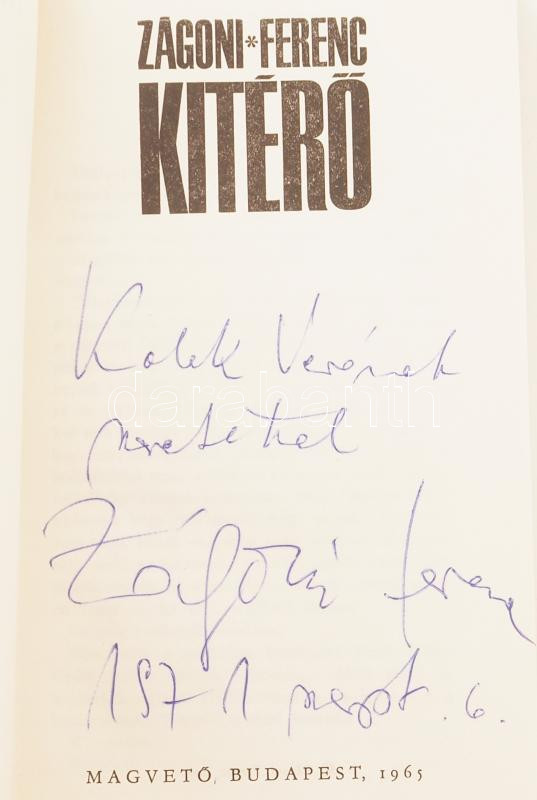 ZÁGONI * FERENC
KITÉRŐ
Kolek Verának
szeretettel
darabanth
Zágoni Ferenc
1971 szept. 6.
MAGVETŐ, BUDAPEST, 1965